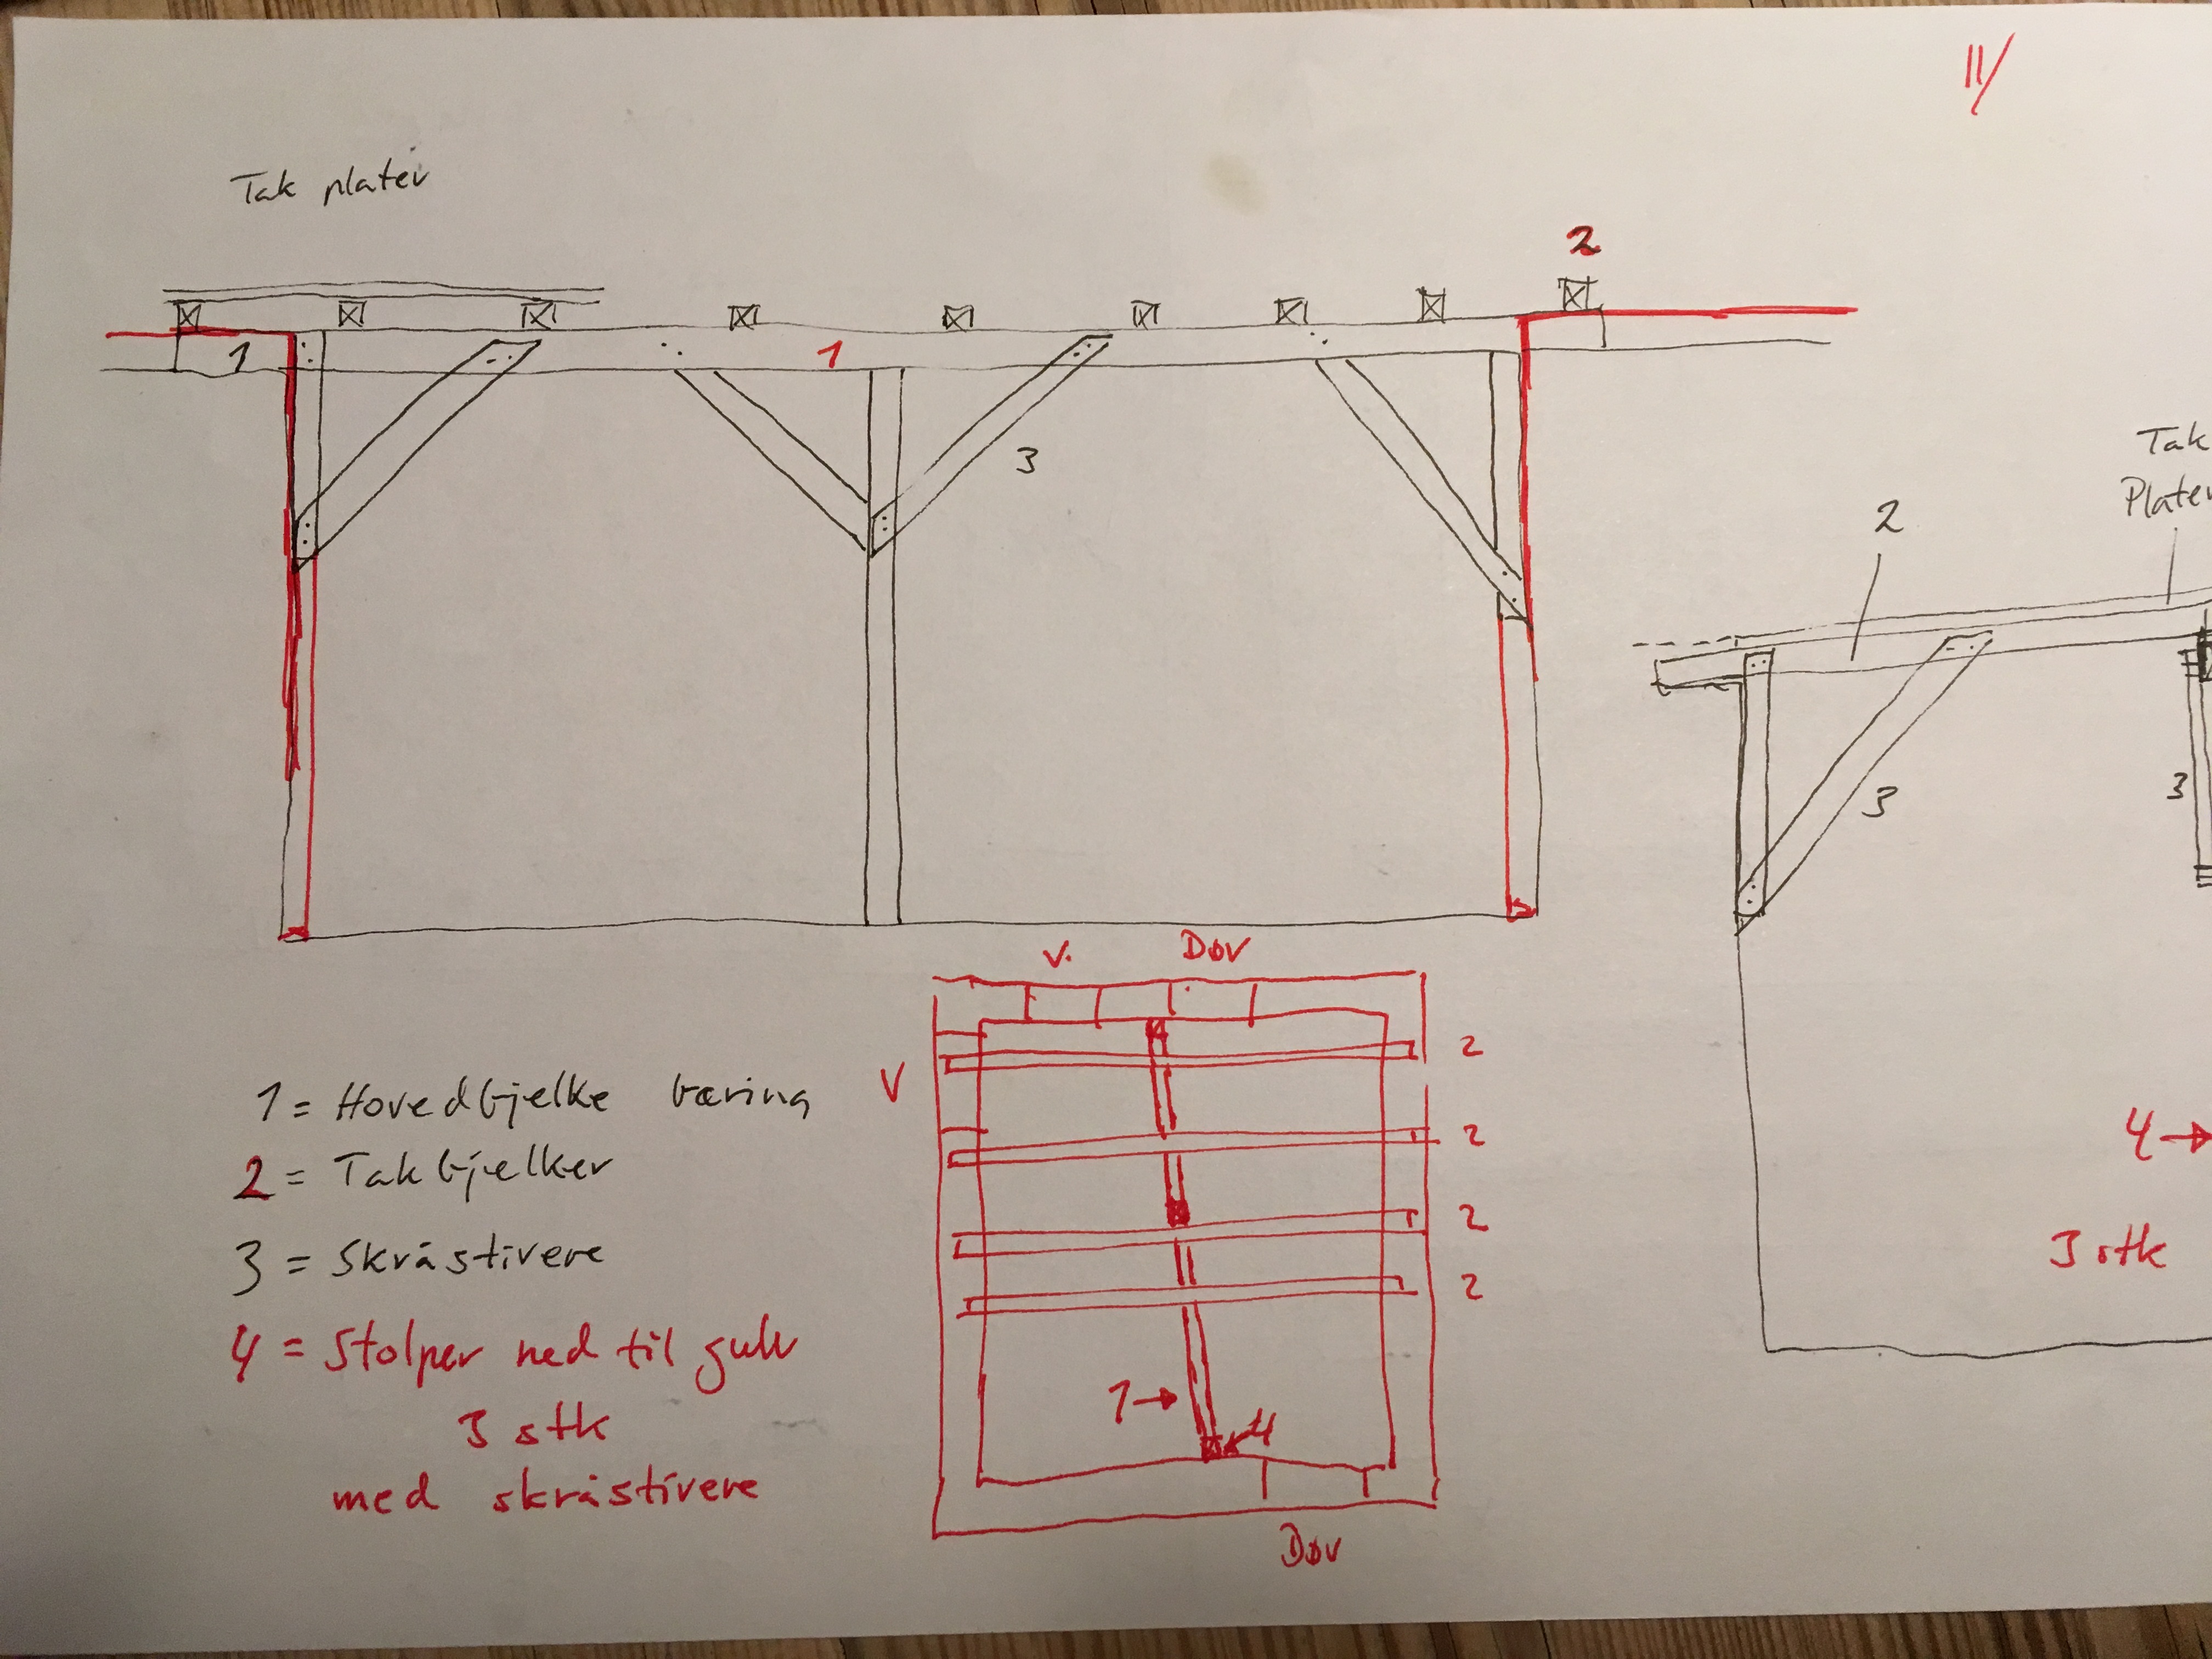 11/
Tak plater
2
1
1
3
Tak
Plater
2
3
3
V. Dør
1 = Hovedbjelke bæring
2 = Takbjelker
3 = Skråstivere
4 = Stolper ned til gulv
3 stk
med skråstivere
V
2
2
2
2
1
4
Dør
4
3 stk